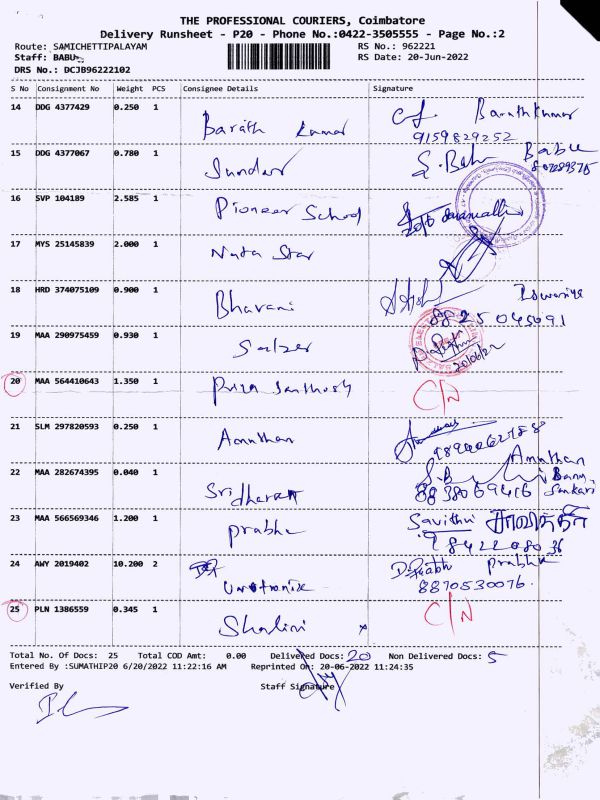 THE PROFESSIONAL COURIERS, Coimbatore
Delivery Runsheet - P20 - Phone No.:0422-3505555 - Page No.:2
Route: SAMICHETTIPALAYAM RS No.: 962221
Staff: BABU RS Date: 20-Jun-2022
DRS No.: DCJB96222102
S No Consignment No Weight PCS Consignee Details Signature
14 DDG 4377429 0.250 1 Barath Kumar Barathkumar
9159829252
15 DDG 4377067 0.780 1 Sundar Babu
16 SVP 104189 2.585 1 Pioneer School
17 MYS 25145839 2.000 1 Nuta Star
18 HRD 374075109 0.900 1 Bharani
8825045091
19 MAA 290975459 0.930 1 Salzer
20/06/22
20 MAA 564410643 1.350 1 Priya Santhosh C/N
21 SLM 297820593 0.250 1 Amuthan
Amuthan
22 MAA 282674395 0.040 1 Sridharan Banu
8838069416 Sankari
23 MAA 566569346 1.200 1 Prabhu Savithri சாவித்திரி
9842208036
24 AWY 2019402 10.200 2 Prabhu
8870530076
25 PLN 1386559 0.345 1 Shalini x C/N
Total No. Of Docs: 25 Total COD Amt: 0.00 Delivered Docs: 20 Non Delivered Docs: 5
Entered By :SUMATHIP20 6/20/2022 11:22:16 AM Reprinted On: 20-06-2022 11:24:35
Verified By Staff Signature